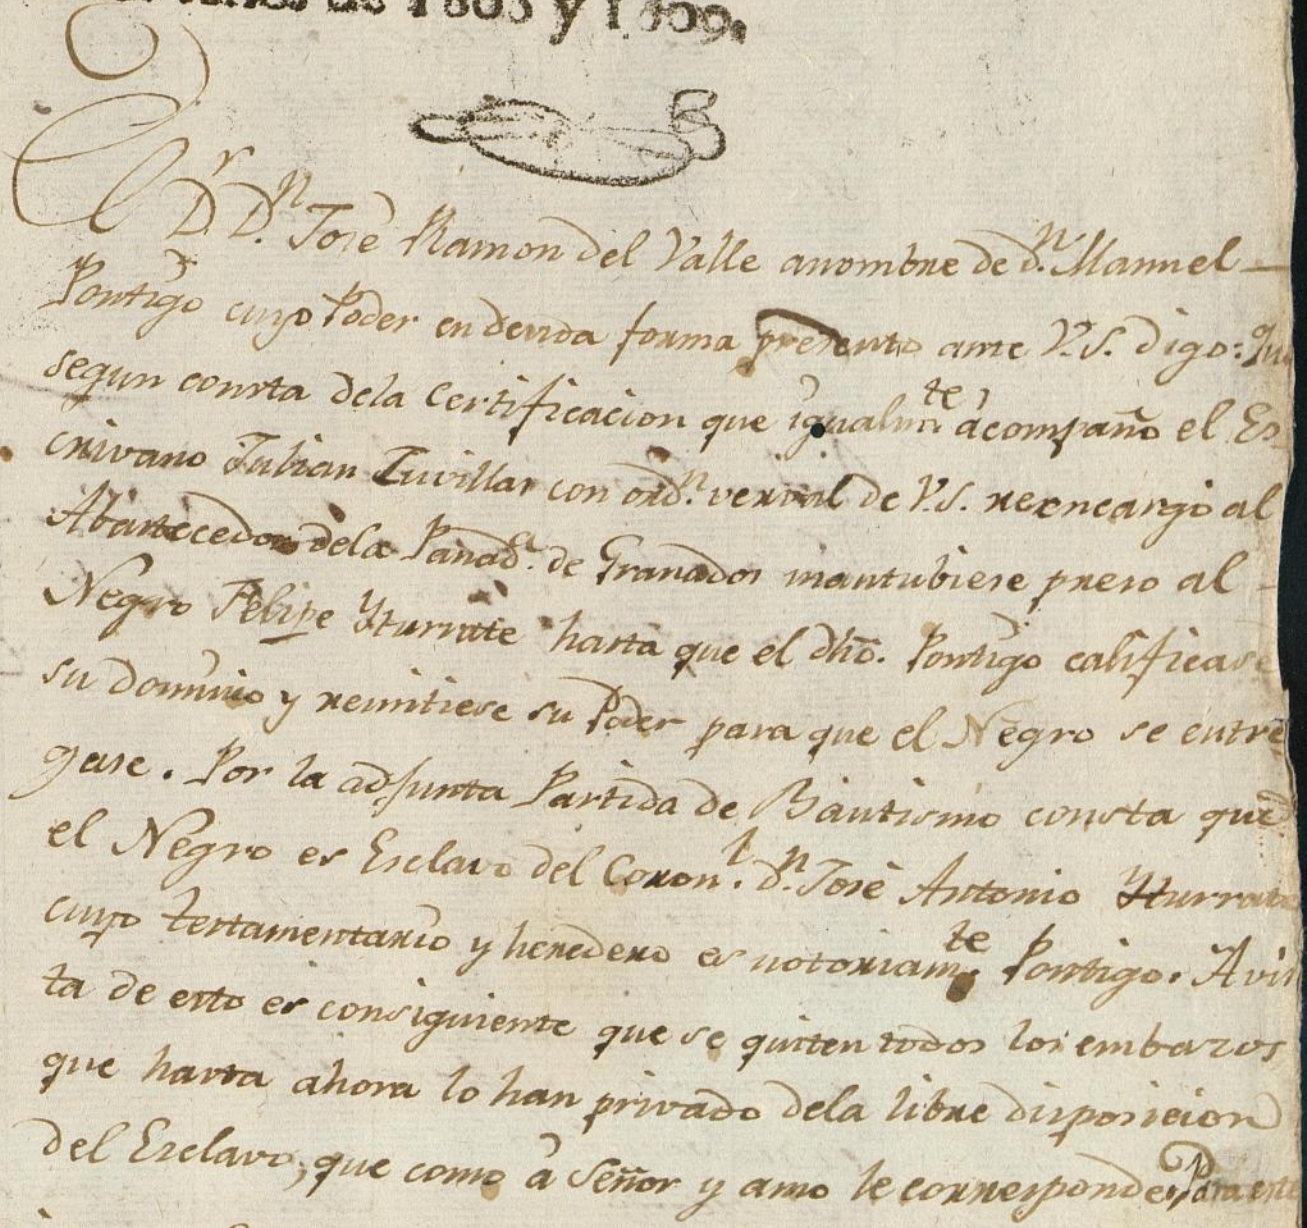 de 1808 y 1809.
Dr. Dn. José Ramon del Valle anombre de dn. Manuel
Pontigo cuyo Poder en devida forma presento ante V.S. digo: Que
segun consta dela Certificacion que igualmte. acompaño el Es
crivano Julian Cuvillas con ordn. verval de V.S. reencargó al
Abastecedor dela Panada. de Granados mantubiese preso al
Negro Felipe Yturrate hasta que el dho. Pontigo calificase
su dominio y remitiese su Poder para que el Negro se entre
gase. Por la adjunta Partida de Bautismo consta que
el Negro es Esclavo del Coronl. dn. José Antonio Yturrate
cuyo testamentario y heredero es notoriamte. Pontigo. A vis
ta de esto es consiguiente que se quiten todos los embazos
que hasta ahora lo han privado dela libre disposicion
del Esclavo, que como à Señor y amo le corresponde; Para esto